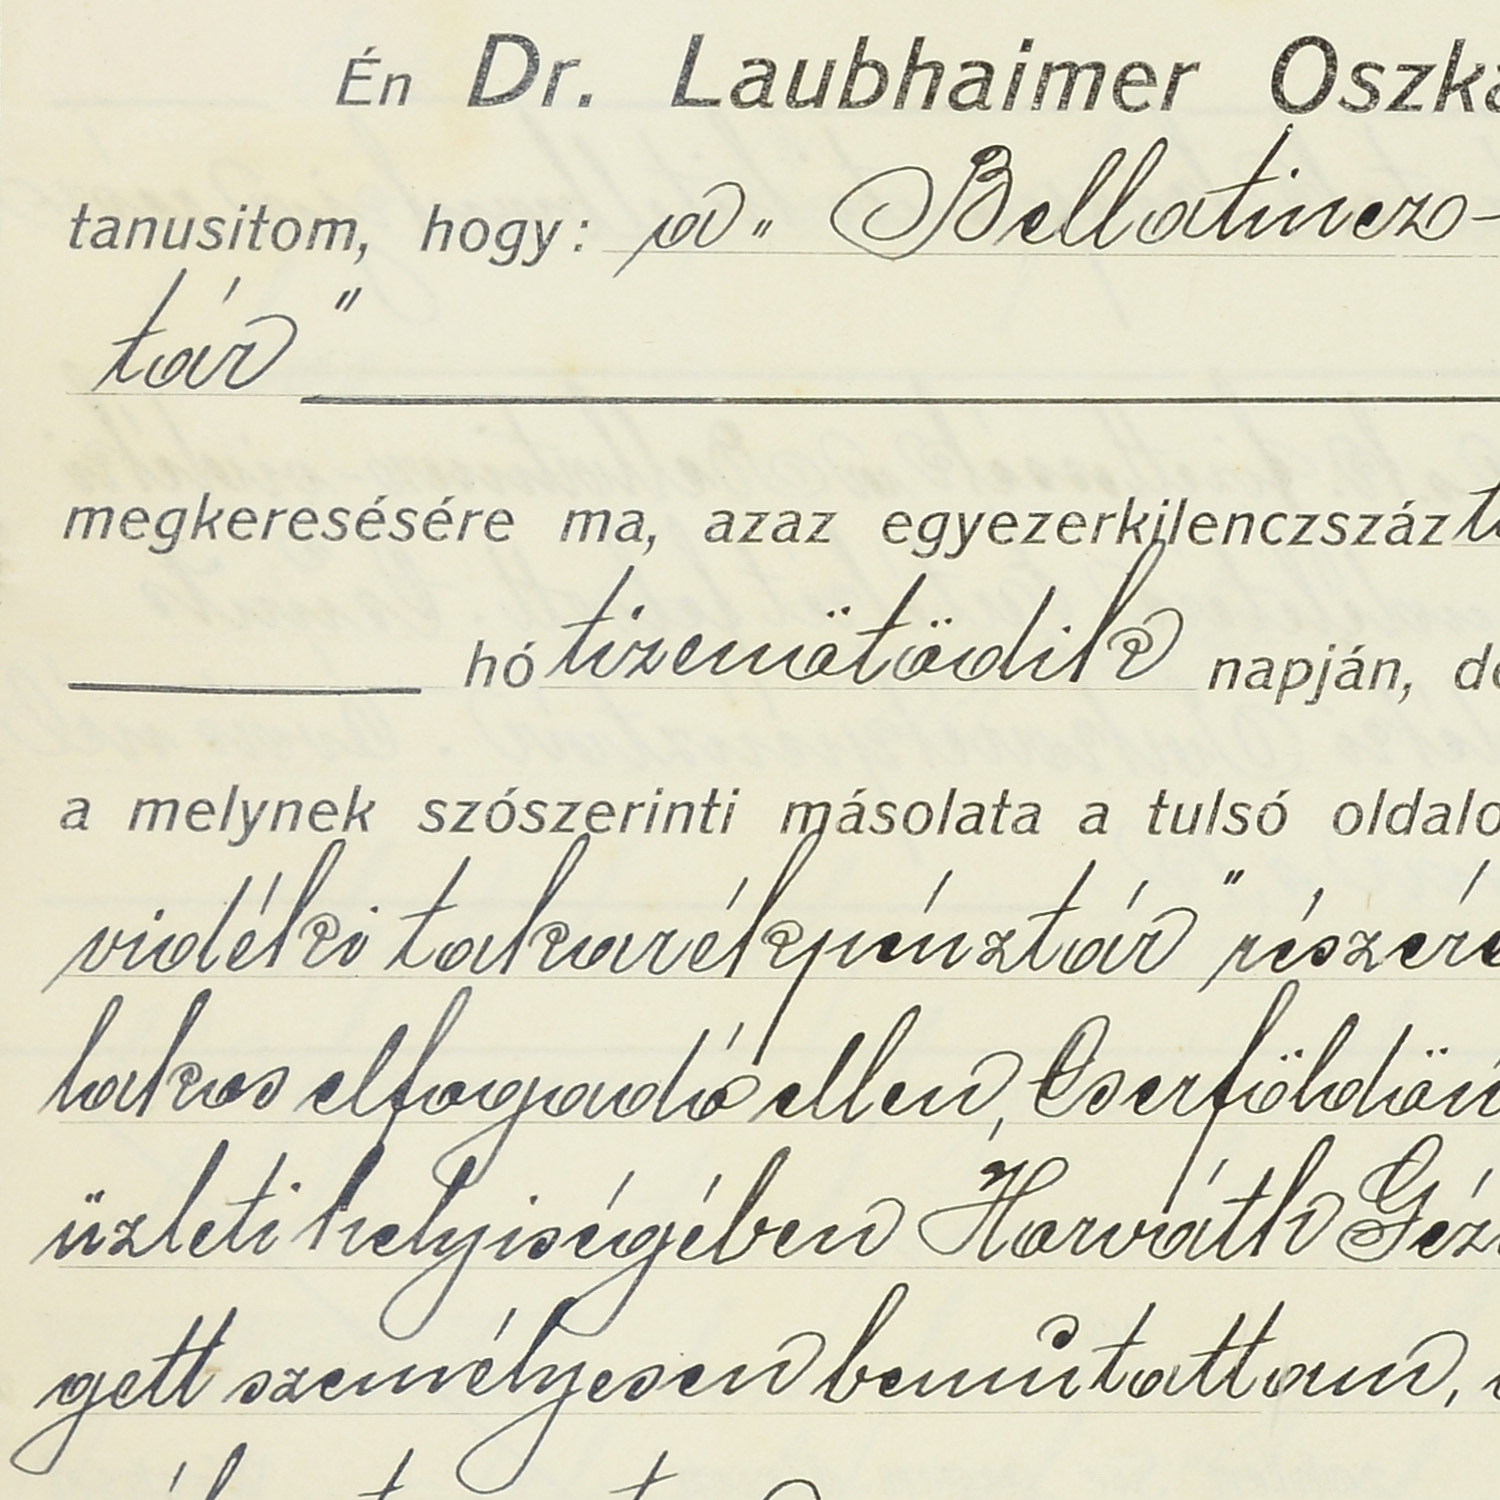 Én Dr. Laubhaimer Oszká
tanusitom, hogy: a „Bellatincz-
tár"
megkeresésére ma, azaz egyezerkilenczszáz
hó tizenötödik napján, de
a melynek szószerinti másolata a tulsó oldalo
vidéki takarékpénztár" részére
lakos elfogadó ellen, Cserföldön
üzleti helyiségében Horváth Géz
gett személyesen bemutattam,